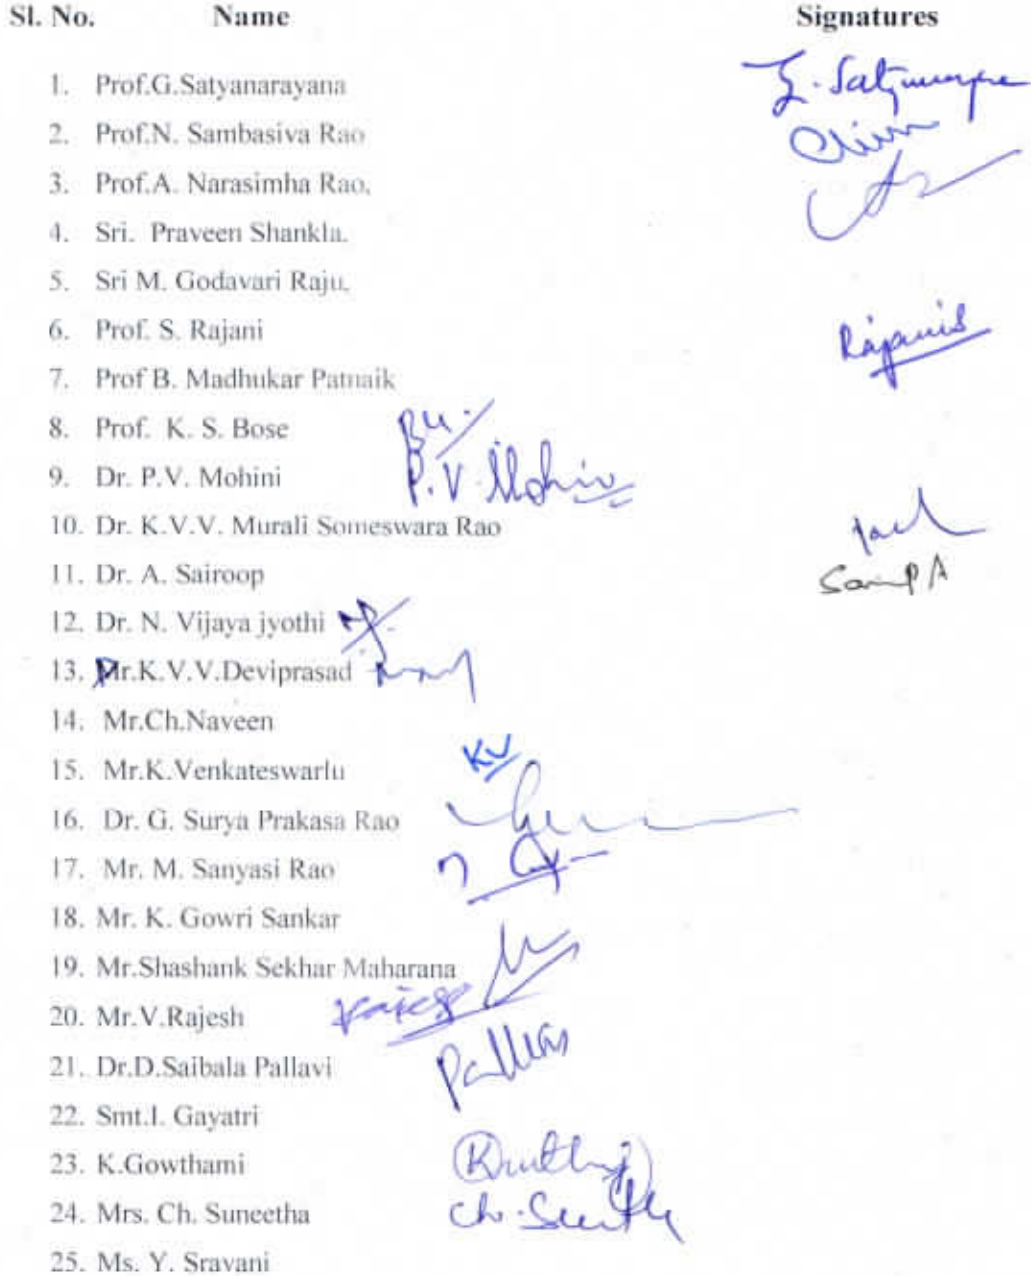 Sl. No. Name Signatures
1. Prof.G.Satyanarayana G. Satyanarayana
2. Prof.N. Sambasiva Rao
3. Prof.A. Narasimha Rao,
4. Sri. Praveen Shankla.
5. Sri M. Godavari Raju,
6. Prof. S. Rajani Rajani S
7. Prof B. Madhukar Patnaik
8. Prof. K. S. Bose
9. Dr. P.V. Mohini P.V. Mohini
10. Dr. K.V.V. Murali Someswara Rao
11. Dr. A. Sairoop
12. Dr. N. Vijaya jyothi
13. Mr.K.V.V.Deviprasad
14. Mr.Ch.Naveen
15. Mr.K.Venkateswarlu KV
16. Dr. G. Surya Prakasa Rao
17. Mr. M. Sanyasi Rao
18. Mr. K. Gowri Sankar
19. Mr.Shashank Sekhar Maharana
20. Mr.V.Rajesh
21. Dr.D.Saibala Pallavi
22. Smt.I. Gayatri
23. K.Gowthami
24. Mrs. Ch. Suneetha
25. Ms. Y. Sravani